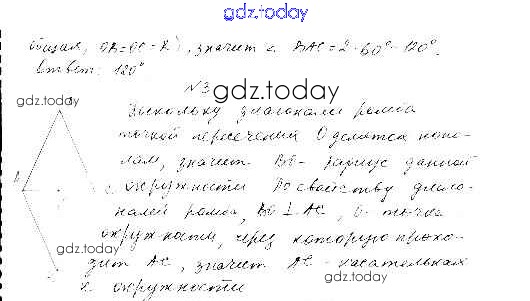 gdz.today
общая, OB=OC=R), значит ∠ BAC=2·60°=120°.
Ответ: 120°
N3
gdz.today
Поскольку диагонали ромба
gdz.today
точкой пересечения O делятся попо-
лам, значит BO - радиус данной
окружности По свойству диаго-
налей ромба, BO ⊥ AC, O - точка
окружности, через которую прохо-
gdz.today
дит AC, значит AC - касательная
gdz.today
к окружности